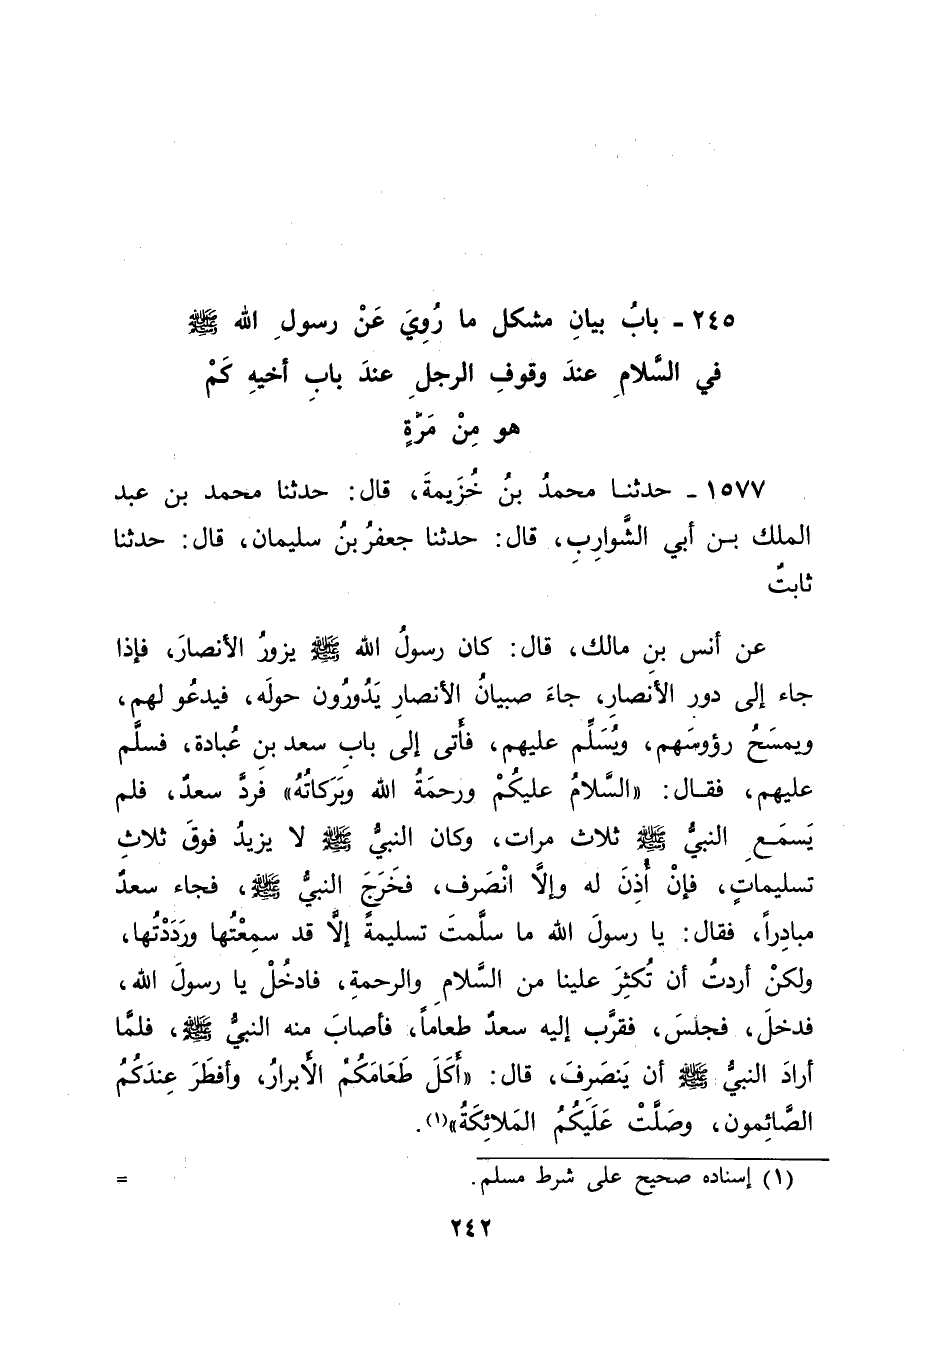 ٢٤٥ - بابُ بيانِ مشكل ما رُوِيَ عَنْ رسولِ الله ﷺ
في السَّلامِ عندَ وقوفِ الرجلِ عندَ بابِ أخيهِ كَمْ
هو مِنْ مَرَّةٍ
١٥٧٧ - حدثنا محمدُ بنُ خُزَيمةَ، قال: حدثنا محمد بن عبد
الملك بن أبي الشَّوارِبِ، قال: حدثنا جعفرُ بنُ سليمان، قال: حدثنا
ثابتٌ
عن أنس بنِ مالك، قال: كان رسولُ الله ﷺ يزورُ الأنصارَ، فإذا
جاء إلى دور الأنصارِ، جاءَ صبيانُ الأنصارِ يَدُورُون حولَه، فيدعُو لهم،
ويمسَحُ رؤوسَهم، ويُسَلِّم عليهم، فأَتى إلى بابِ سعد بنِ عُبادة، فسلَّم
عليهم، فقال: «السَّلامُ عليكُمْ ورحمَةُ الله وبَرَكاتُهُ» فردَّ سعدٌ، فلم
يَسمَعِ النبيُّ ﷺ ثلاث مرات، وكان النبيُّ ﷺ لا يزيدُ فوقَ ثلاثِ
تسليماتٍ، فإنْ أُذِنَ له وإلَّا انْصَرف، فخَرَجَ النبيُّ ﷺ، فجاء سعدٌ
مبادِراً، فقال: يا رسولَ الله ما سلَّمتَ تسليمةً إلَّا قد سمِعْتُها ورَدَدْتُها،
ولكنْ أردتُ أن تُكثِرَ علينا من السَّلامِ والرحمةِ، فادخُلْ يا رسولَ الله،
فدخلَ، فجلسَ، فقرَّب إليه سعدٌ طعاماً، فأصابَ منه النبيُّ ﷺ، فلمَّا
أرادَ النبيُّ ﷺ أن يَنصَرِفَ، قال: «أَكَلَ طَعَامَكُمُ الأَبرارُ، وأفطَرَ عِندَكُمُ
الصَّائِمون، وصَلَّتْ عَلَيكُمُ المَلائِكَةُ»(١).
(١) إسناده صحيح على شرط مسلم. =
٢٤٢